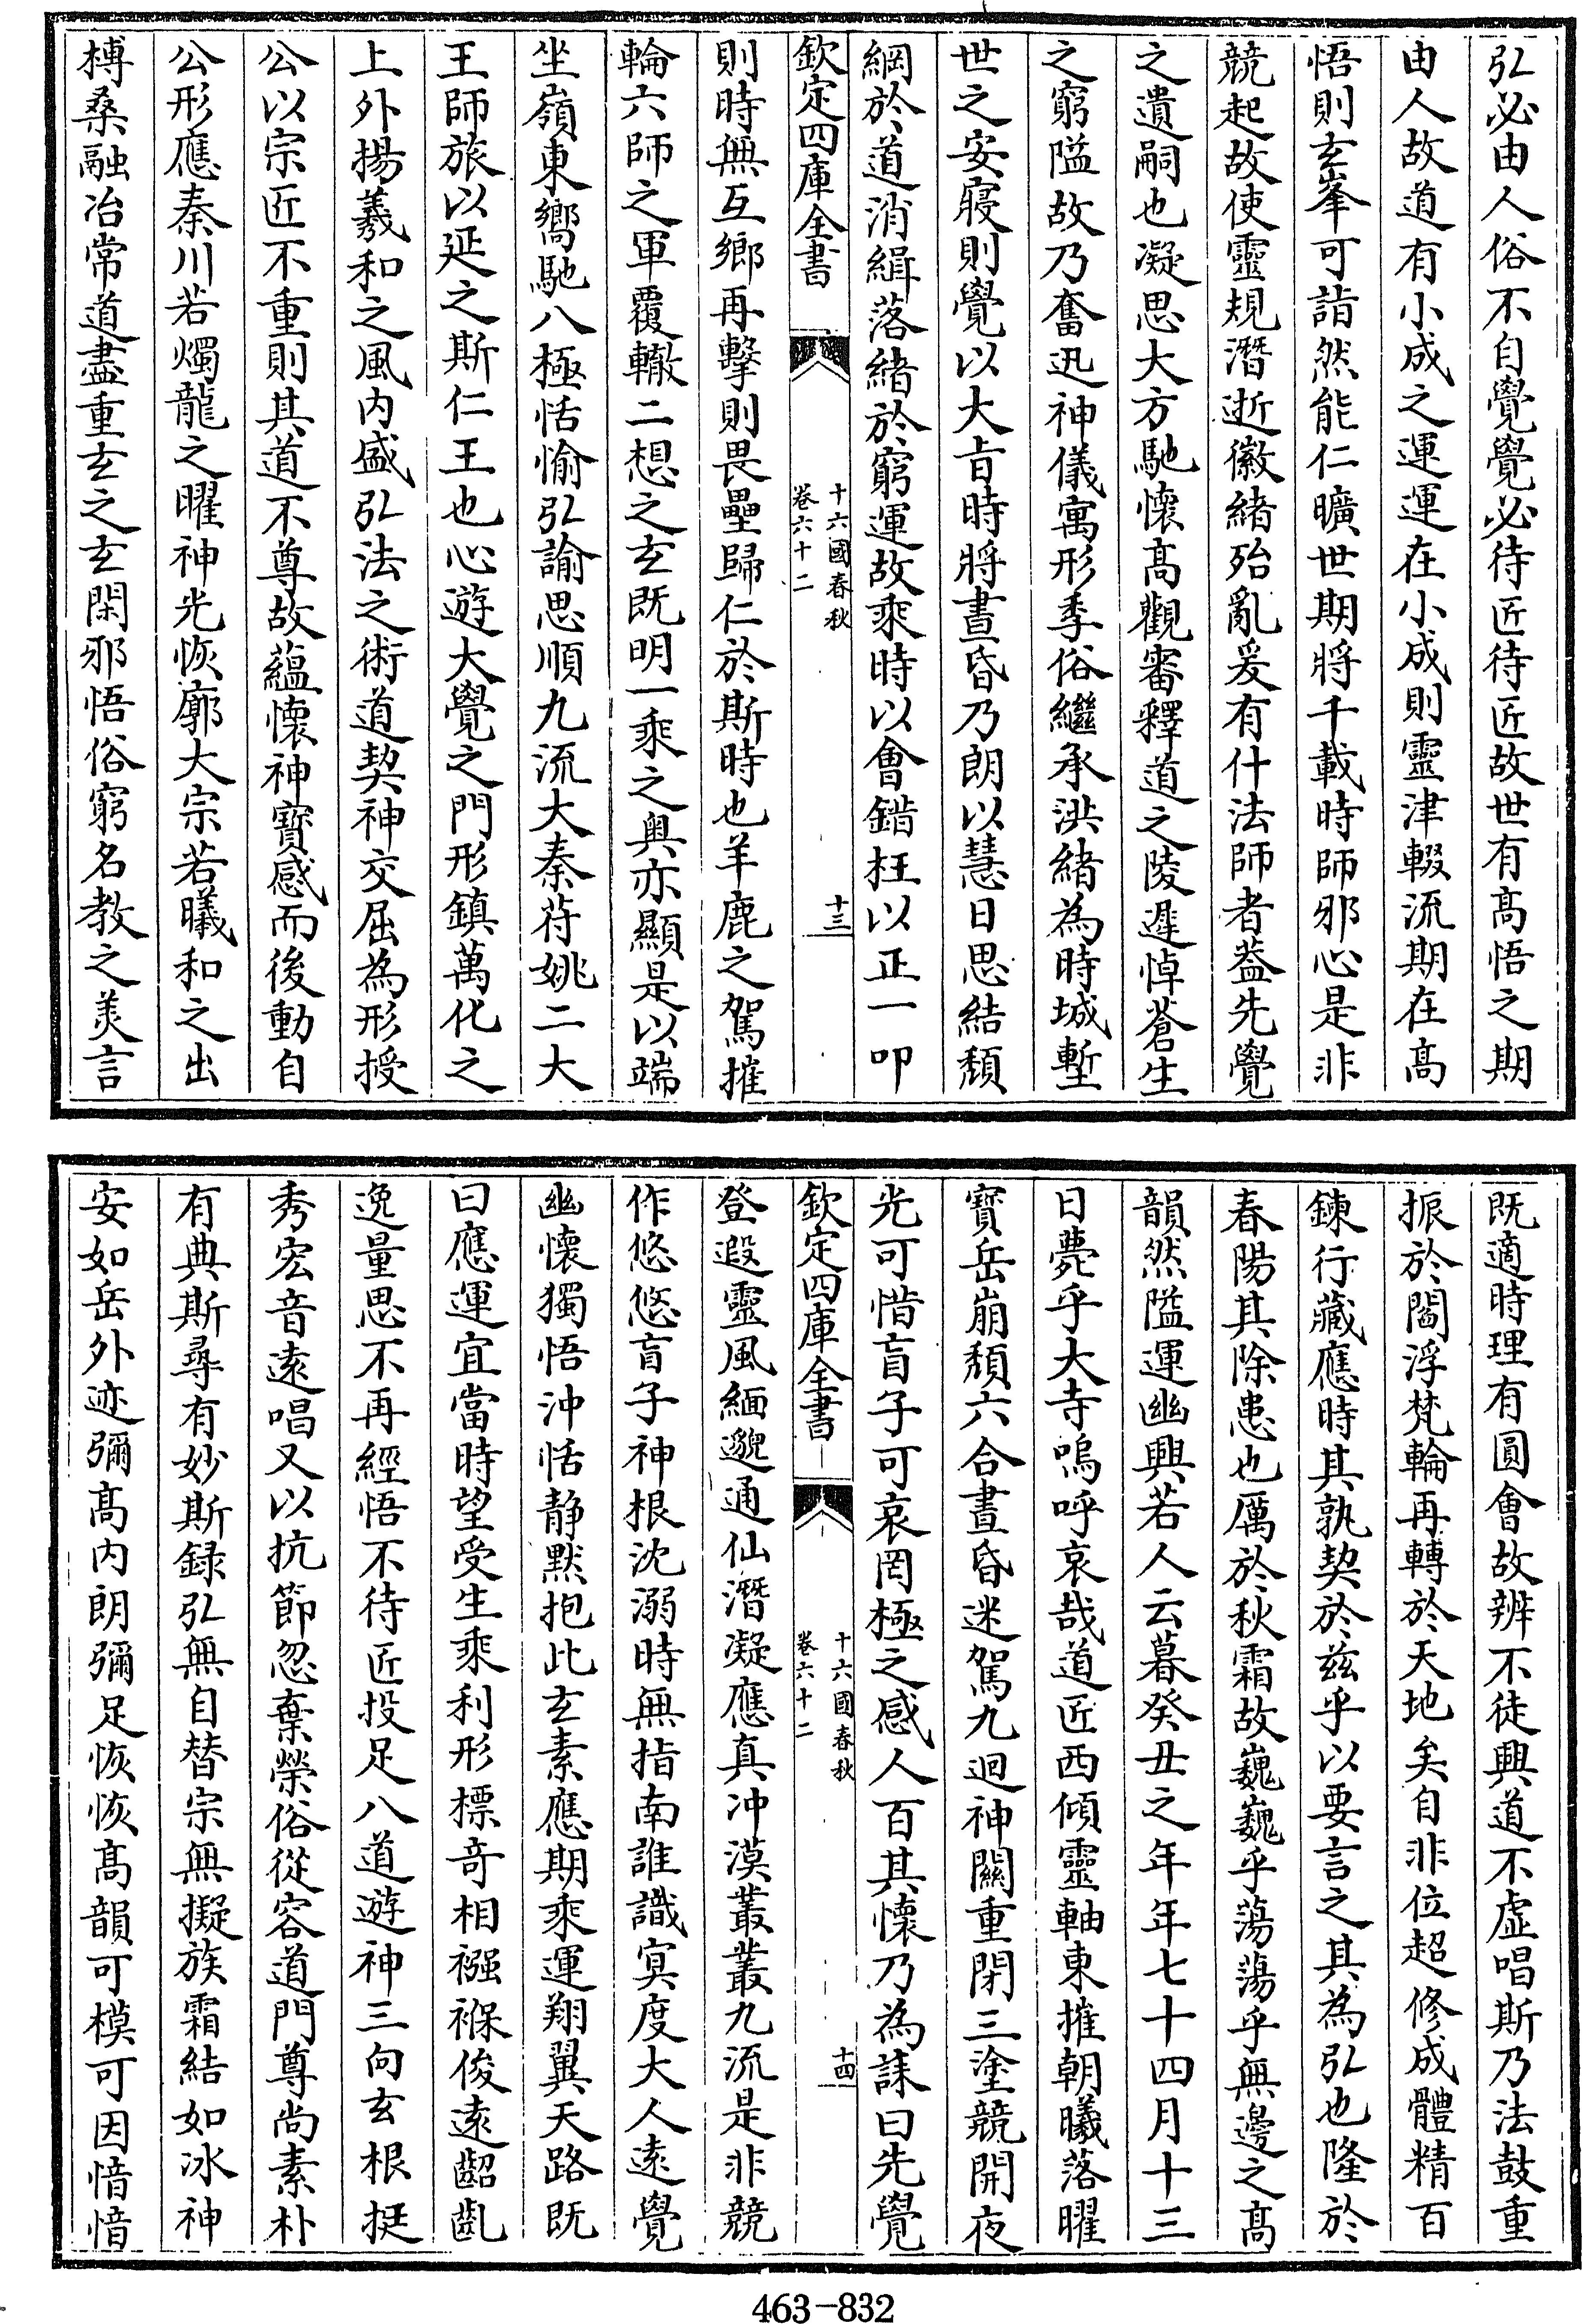 弘必由人俗不自覺覺必待匠待匠故世有髙悟之期
由人故道有小成之運運在小成則靈津輟流期在髙
悟則玄峯可詣然能仁曠世期將千載時師邪心是非
競起故使靈規潛逝徽緒殆亂爰有什法師者葢先覺
之遺嗣也凝思大方馳懷髙觀審釋道之陵遲悼蒼生
之窮隘故乃奮迅神儀寓形季俗繼承洪緒為時城塹
世之安寢則覺以大音時將晝昏乃朗以慧日思結頽
綱於道消緝落緒於窮運故乘時以會錯枉以正一叩
欽定四庫全書
十六國春秋
卷六十二
十三
則時無互鄉再擊則畏壘歸仁於斯時也羊鹿之駕摧
輪六師之軍覆轍二想之玄既明一乘之奥亦顯是以端
坐嶺東嚮馳八極恬愉弘諭思順九流大秦苻姚二大
王師旅以延之斯仁王也心遊大覺之門形鎮萬化之
上外揚羲和之風内盛弘法之術道契神交屈為形授
公以宗匠不重則其道不尊故蘊懷神寶感而後動自
公形應秦川若燭龍之曜神光恢廓大宗若曦和之出
榑桑融冶常道盡重玄之玄閑邪悟俗窮名教之美言
既適時理有圓會故辨不徒興道不虚唱斯乃法鼓重
振於閻浮梵輪再轉於天地矣自非位超修成體精百
鍊行藏應時其孰契於兹乎以要言之其為弘也隆於
春陽其除患也厲於秋霜故巍巍乎蕩蕩乎無邊之髙
韻然隘運幽興若人云暮癸丑之年年七十四月十三
日薨乎大寺嗚呼哀哉道匠西傾靈軸東摧朝曦落曜
寳岳崩頽六合晝昏迷駕九迴神關重閉三塗競開夜
光可惜盲子可哀罔極之感人百其懷乃為誄曰先覺
欽定四庫全書
十六國春秋
卷六十二
十四
登遐靈風緬邈通仙潛凝應真冲漠叢叢九流是非競
作悠悠盲子神根沈溺時無指南誰識冥度大人遠覺
幽懷獨悟沖恬静黙抱此玄素應期乘運翔翼天路既
曰應運宜當時望受生乘利形標竒相襁褓俊遠齠齓
逸量思不再經悟不待匠投足八道遊神三向玄根挺
秀宏音遠唱又以抗節忽棄榮俗從容道門尊尚素朴
有典斯尋有妙斯録弘無自替宗無擬族霜結如冰神
安如岳外迹彌髙内朗彌足恢恢髙韻可模可因愔愔
463-832